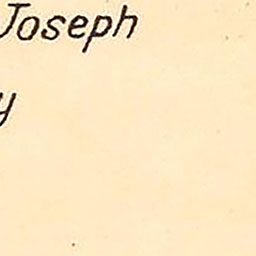 Joseph
y